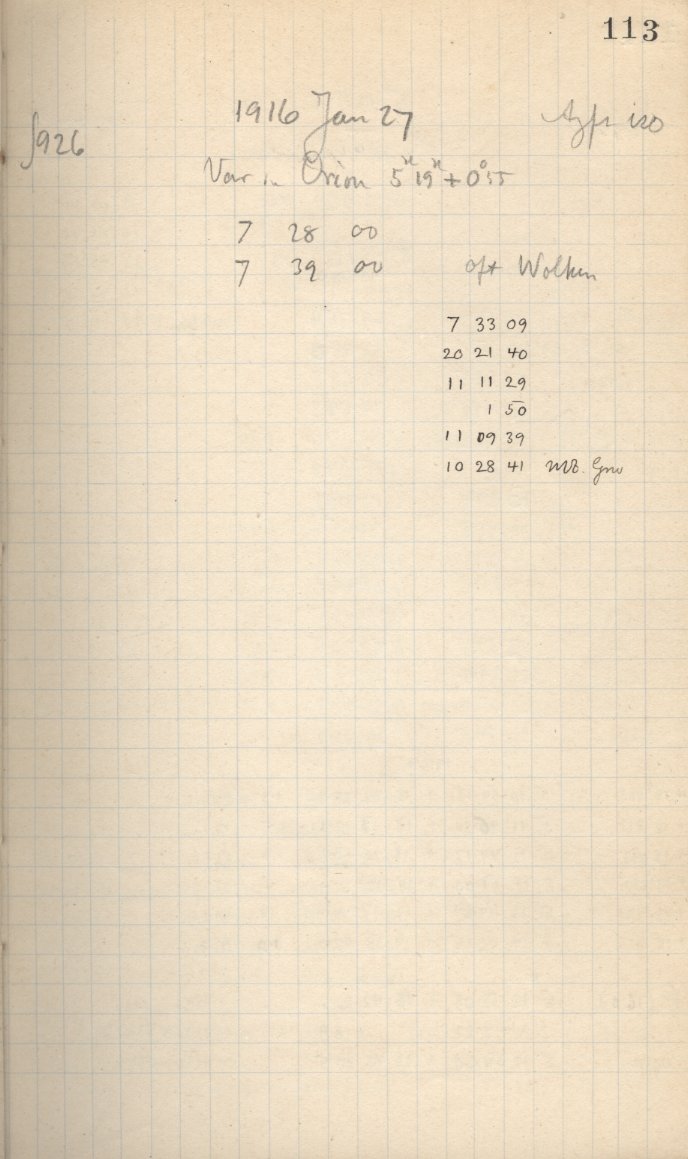 113
1916 Jan 27 Agfa iso
926
Var in Orion 5 19 + 0° 55
7 28 00
7 39 00 oft Wolken
7 33 09
20 21 40
11 11 29
1 50
11 09 39
10 28 41 MZ. Grw